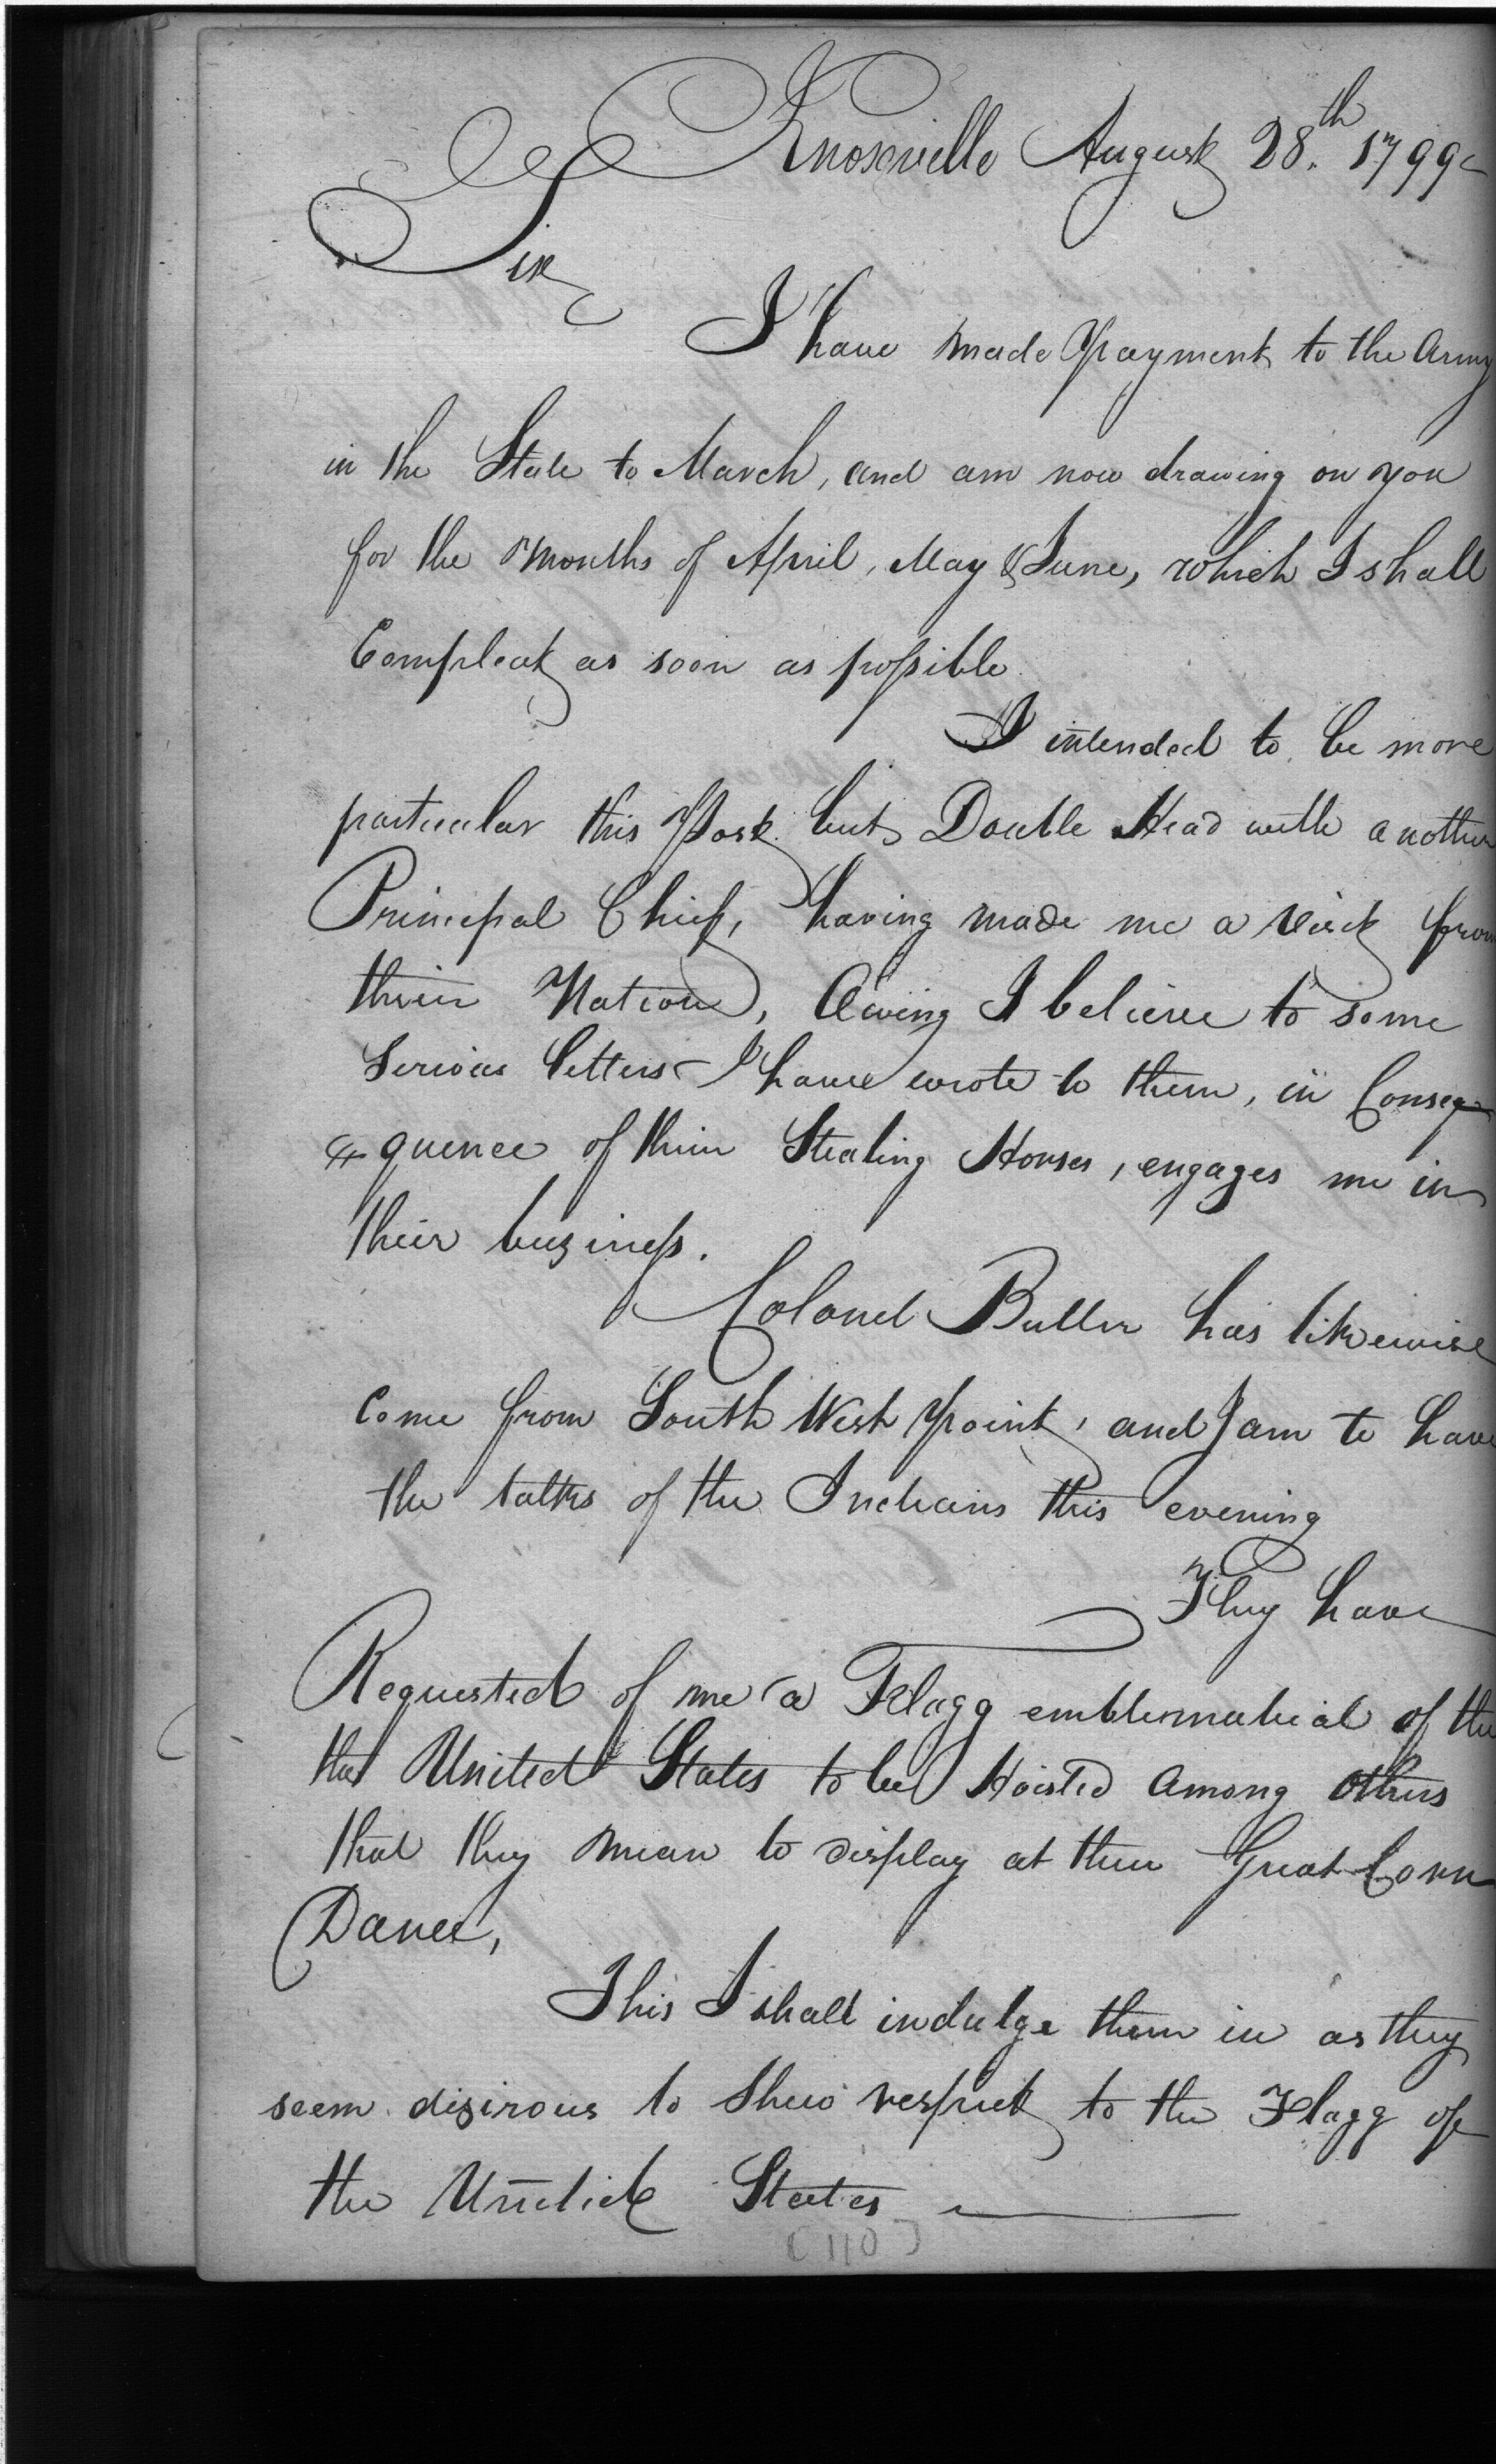 Knoxville August 28th. 1799
Sir
I have made Payment to the Army
in the State to March, and am now drawing on you
for the Months of April, May & June, which I shall
Compleat as soon as possible
I intended to be more
particular this Post but Double Head with another
Principal Chief, having made me a visit from
their Nation, Owing I believe to some
Serious letters I have wrote to them, in Conseq
quence of their Stealing Horses, engages me in
their business.
Colonel Butler has likewise
Come from South West Point, and I am to have
the talks of the Indians this evening
They have
Requested of me a Flagg emblematical of the
the United States to be Hoisted among others
that they mean to display at their Great Corn
Dance,
This I shall indulge them in as they
seem desirous to shew respect to the Flagg of
the United States
[110]